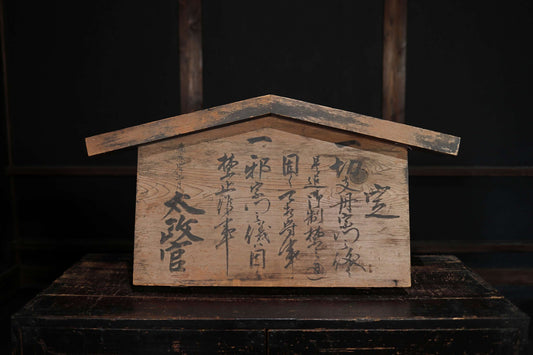 定
一切支丹宗門之儀
是迄御制禁之通
固ク可相守事
一邪宗門之儀固ク
禁止候事
太政官